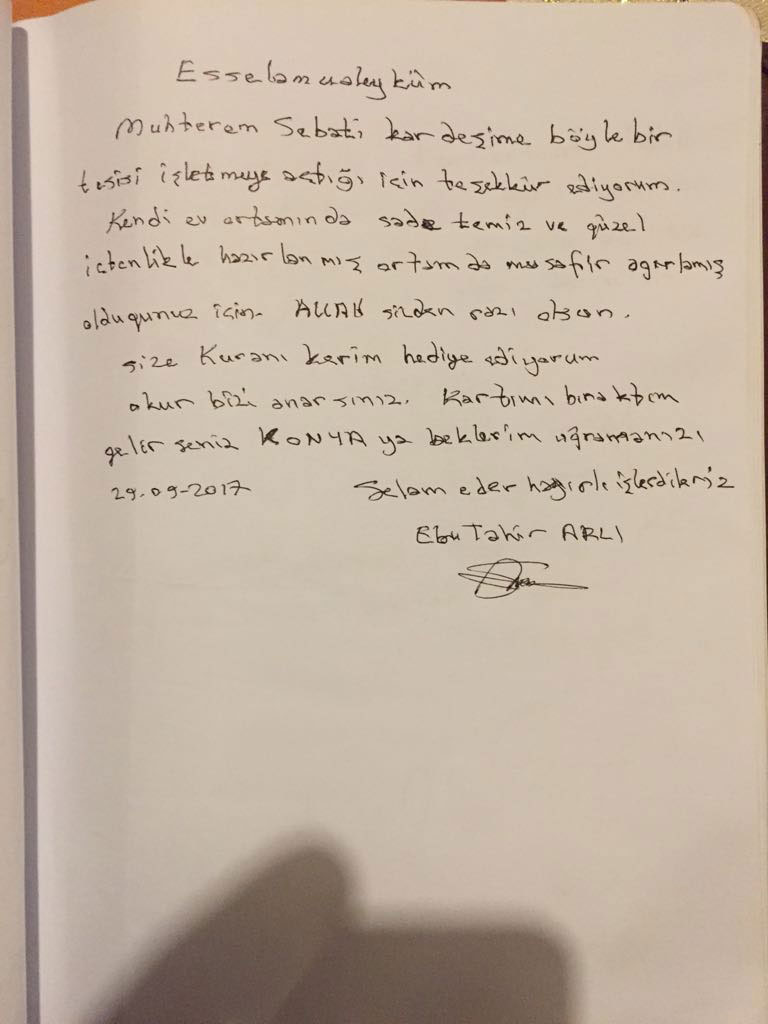 Esselamualeyküm
Muhterem Sebati kardeşime böyle bir
tesisi işletmeye açtığı için teşekkür ediyorum.
Kendi ev ortamında sade temiz ve güzel
içtenlikle hazırlanmış ortamda musafir agarlamış
oldugunuz için. ALLAH sizden razı olsun.
size Kuranı kerim hediye ediyorum
okur bizi anarsınız. Kartımı bıraktım
gelirseniz KONYA ya beklerim uğramanızı
29.09-2017 Selam eder hayırlı işler dileriz
Ebu Tahir ARLI